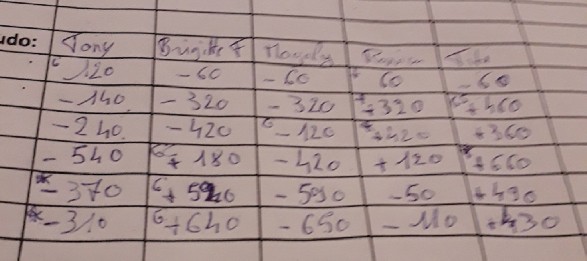 udo: Tony Brigitte F
120 -60 -60 60 -60
-140 -320 -320 +320 +460
-240 -420 -120 +420 +360
-540 +180 -420 +120 +660
-370 +520 -590 -50 +490
-310 +640 -650 -110 +430